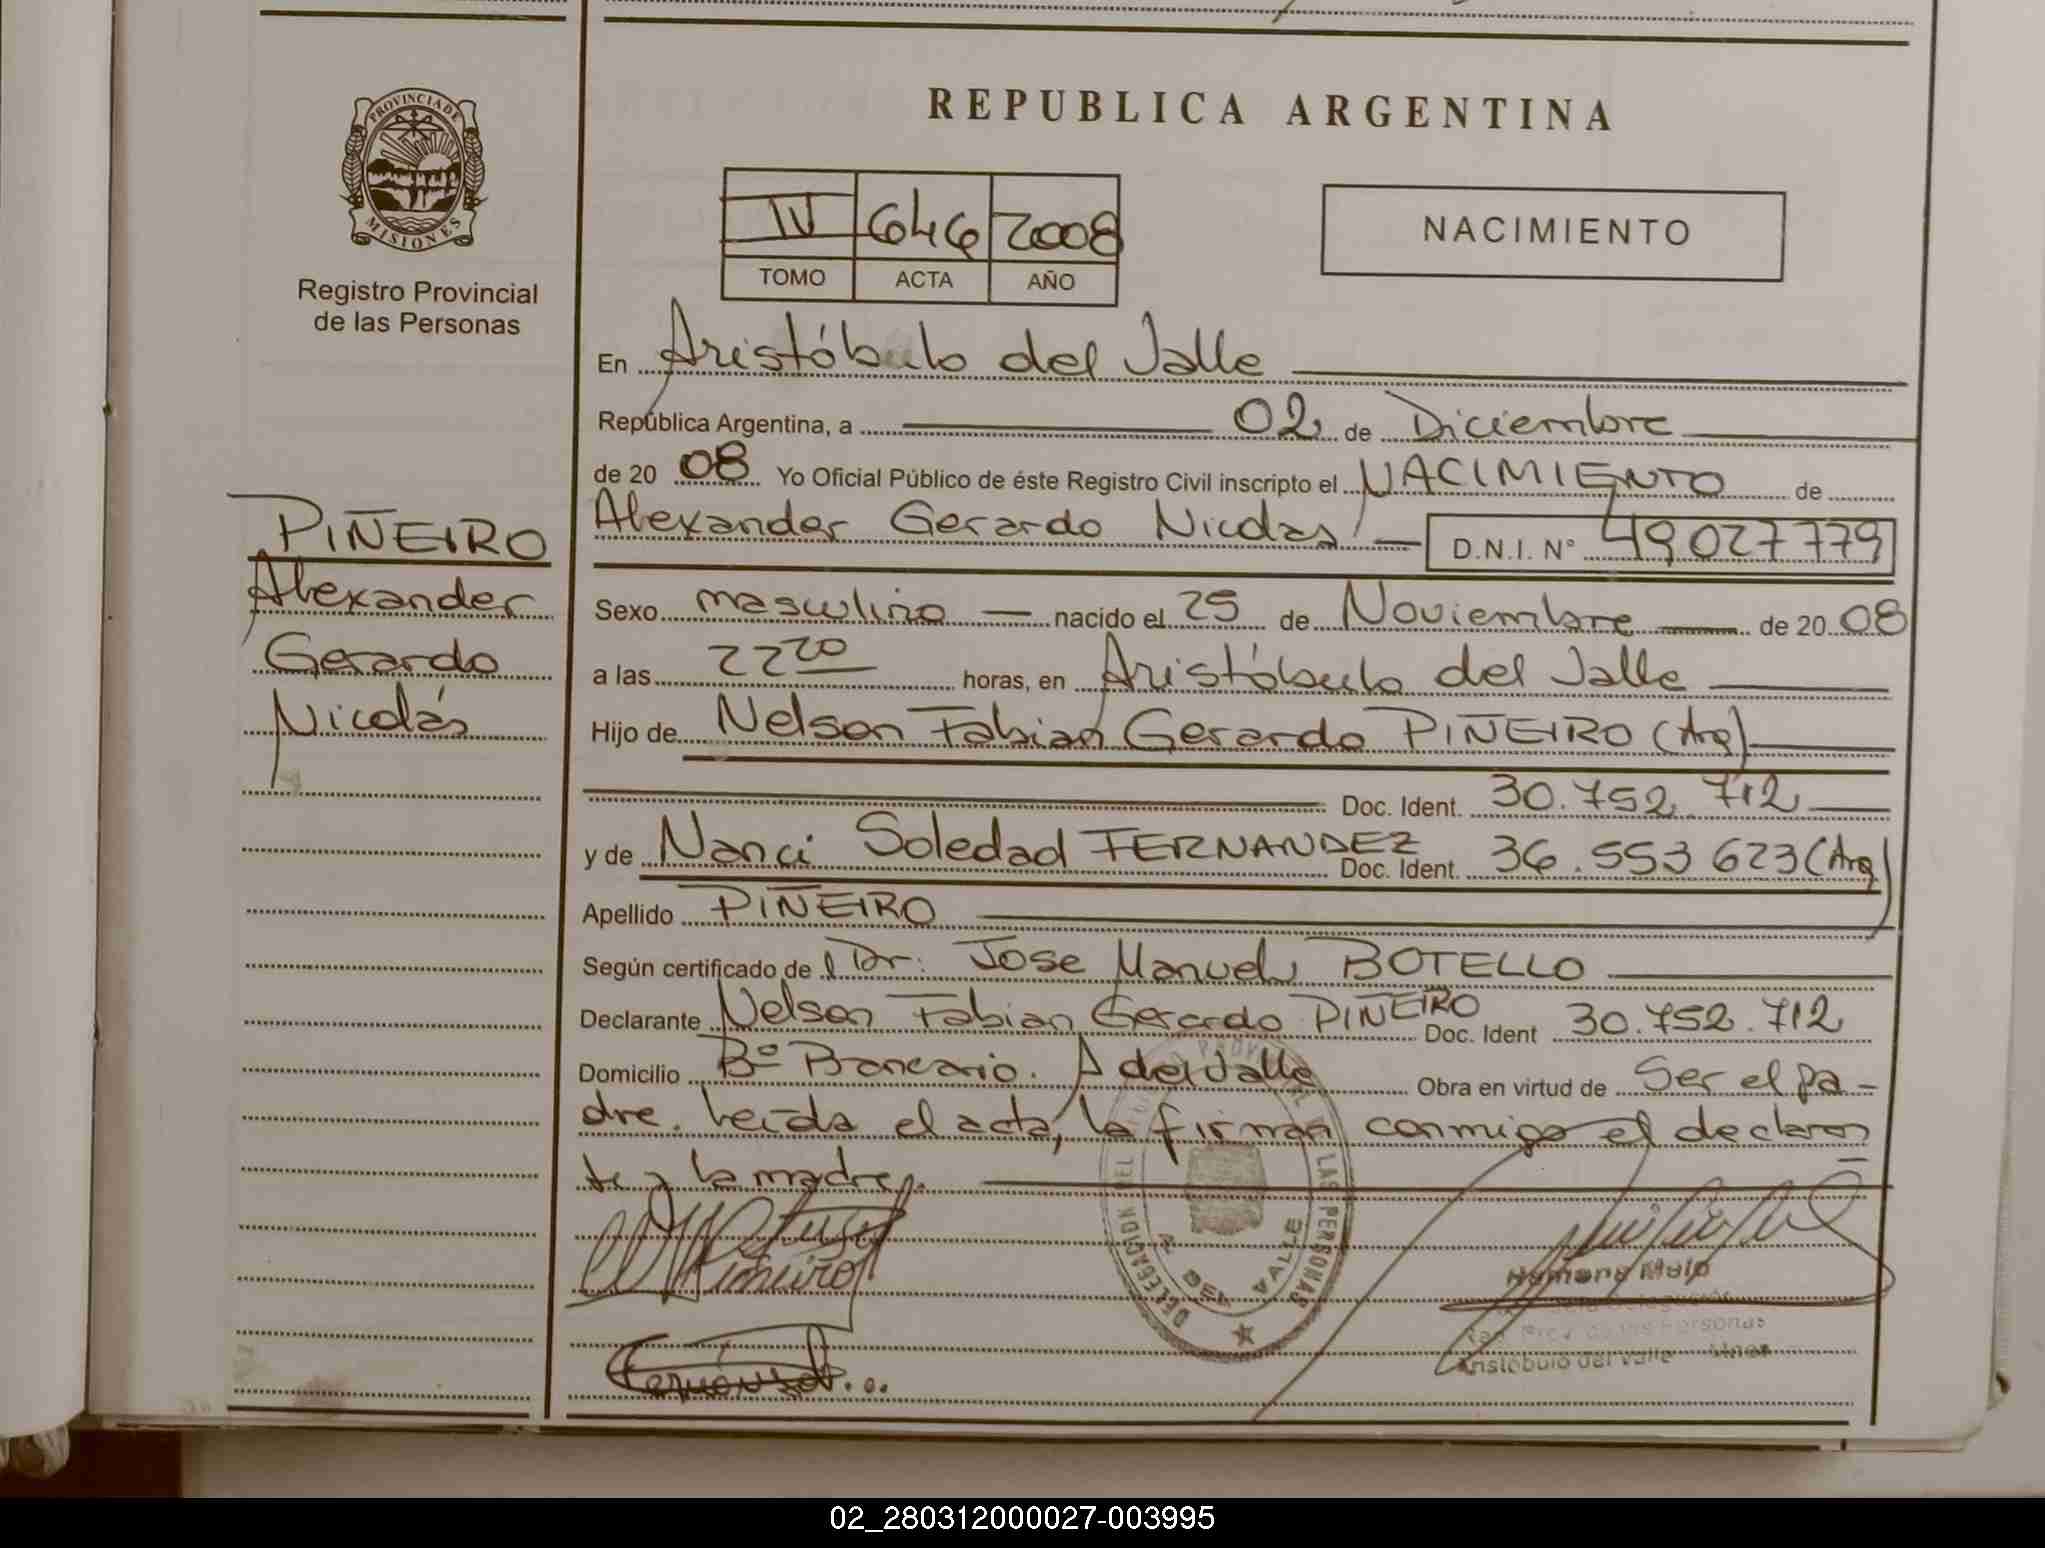 REPUBLICA ARGENTINA
PROVINCIA DE
MISIONES
Registro Provincial
de las Personas
IV 646 2008
TOMO ACTA AÑO
NACIMIENTO
En Aristóbulo del Valle
República Argentina, a 02 de Diciembre
de 20 08 Yo Oficial Público de éste Registro Civil inscripto el NACIMIENTO de
Alexander Gerardo Nicolas D.N.I. N° 49027779
PIÑEIRO
Alexander
Gerardo
Nicolás
Sexo masculino nacido el 25 de Noviembre de 20 08
a las 22 20 horas, en Aristóbulo del Valle
Hijo de Nelson Fabian Gerardo PIÑEIRO (Arg)
Doc. Ident. 30.752.712
y de Nanci Soledad FERNANDEZ Doc. Ident. 36.553 623 (Arg)
Apellido PIÑEIRO
Según certificado de Dr. Jose Manuel BOTELLO
Declarante Nelson Fabian Gerardo PIÑEIRO Doc. Ident 30.752.712
Domicilio Bº Bancario. A del Valle Obra en virtud de Ser el pa-
dre. Leída el acta, la firman conmigo el declaran
te y la madre.
Piñeiro
DELEGACION DEL REGISTRO PROVINCIAL DE LAS PERSONAS
A. DEL VALLE
Reg. Prov. de las Personas
Aristóbulo del Valle - Mnes
02_280312000027-003995